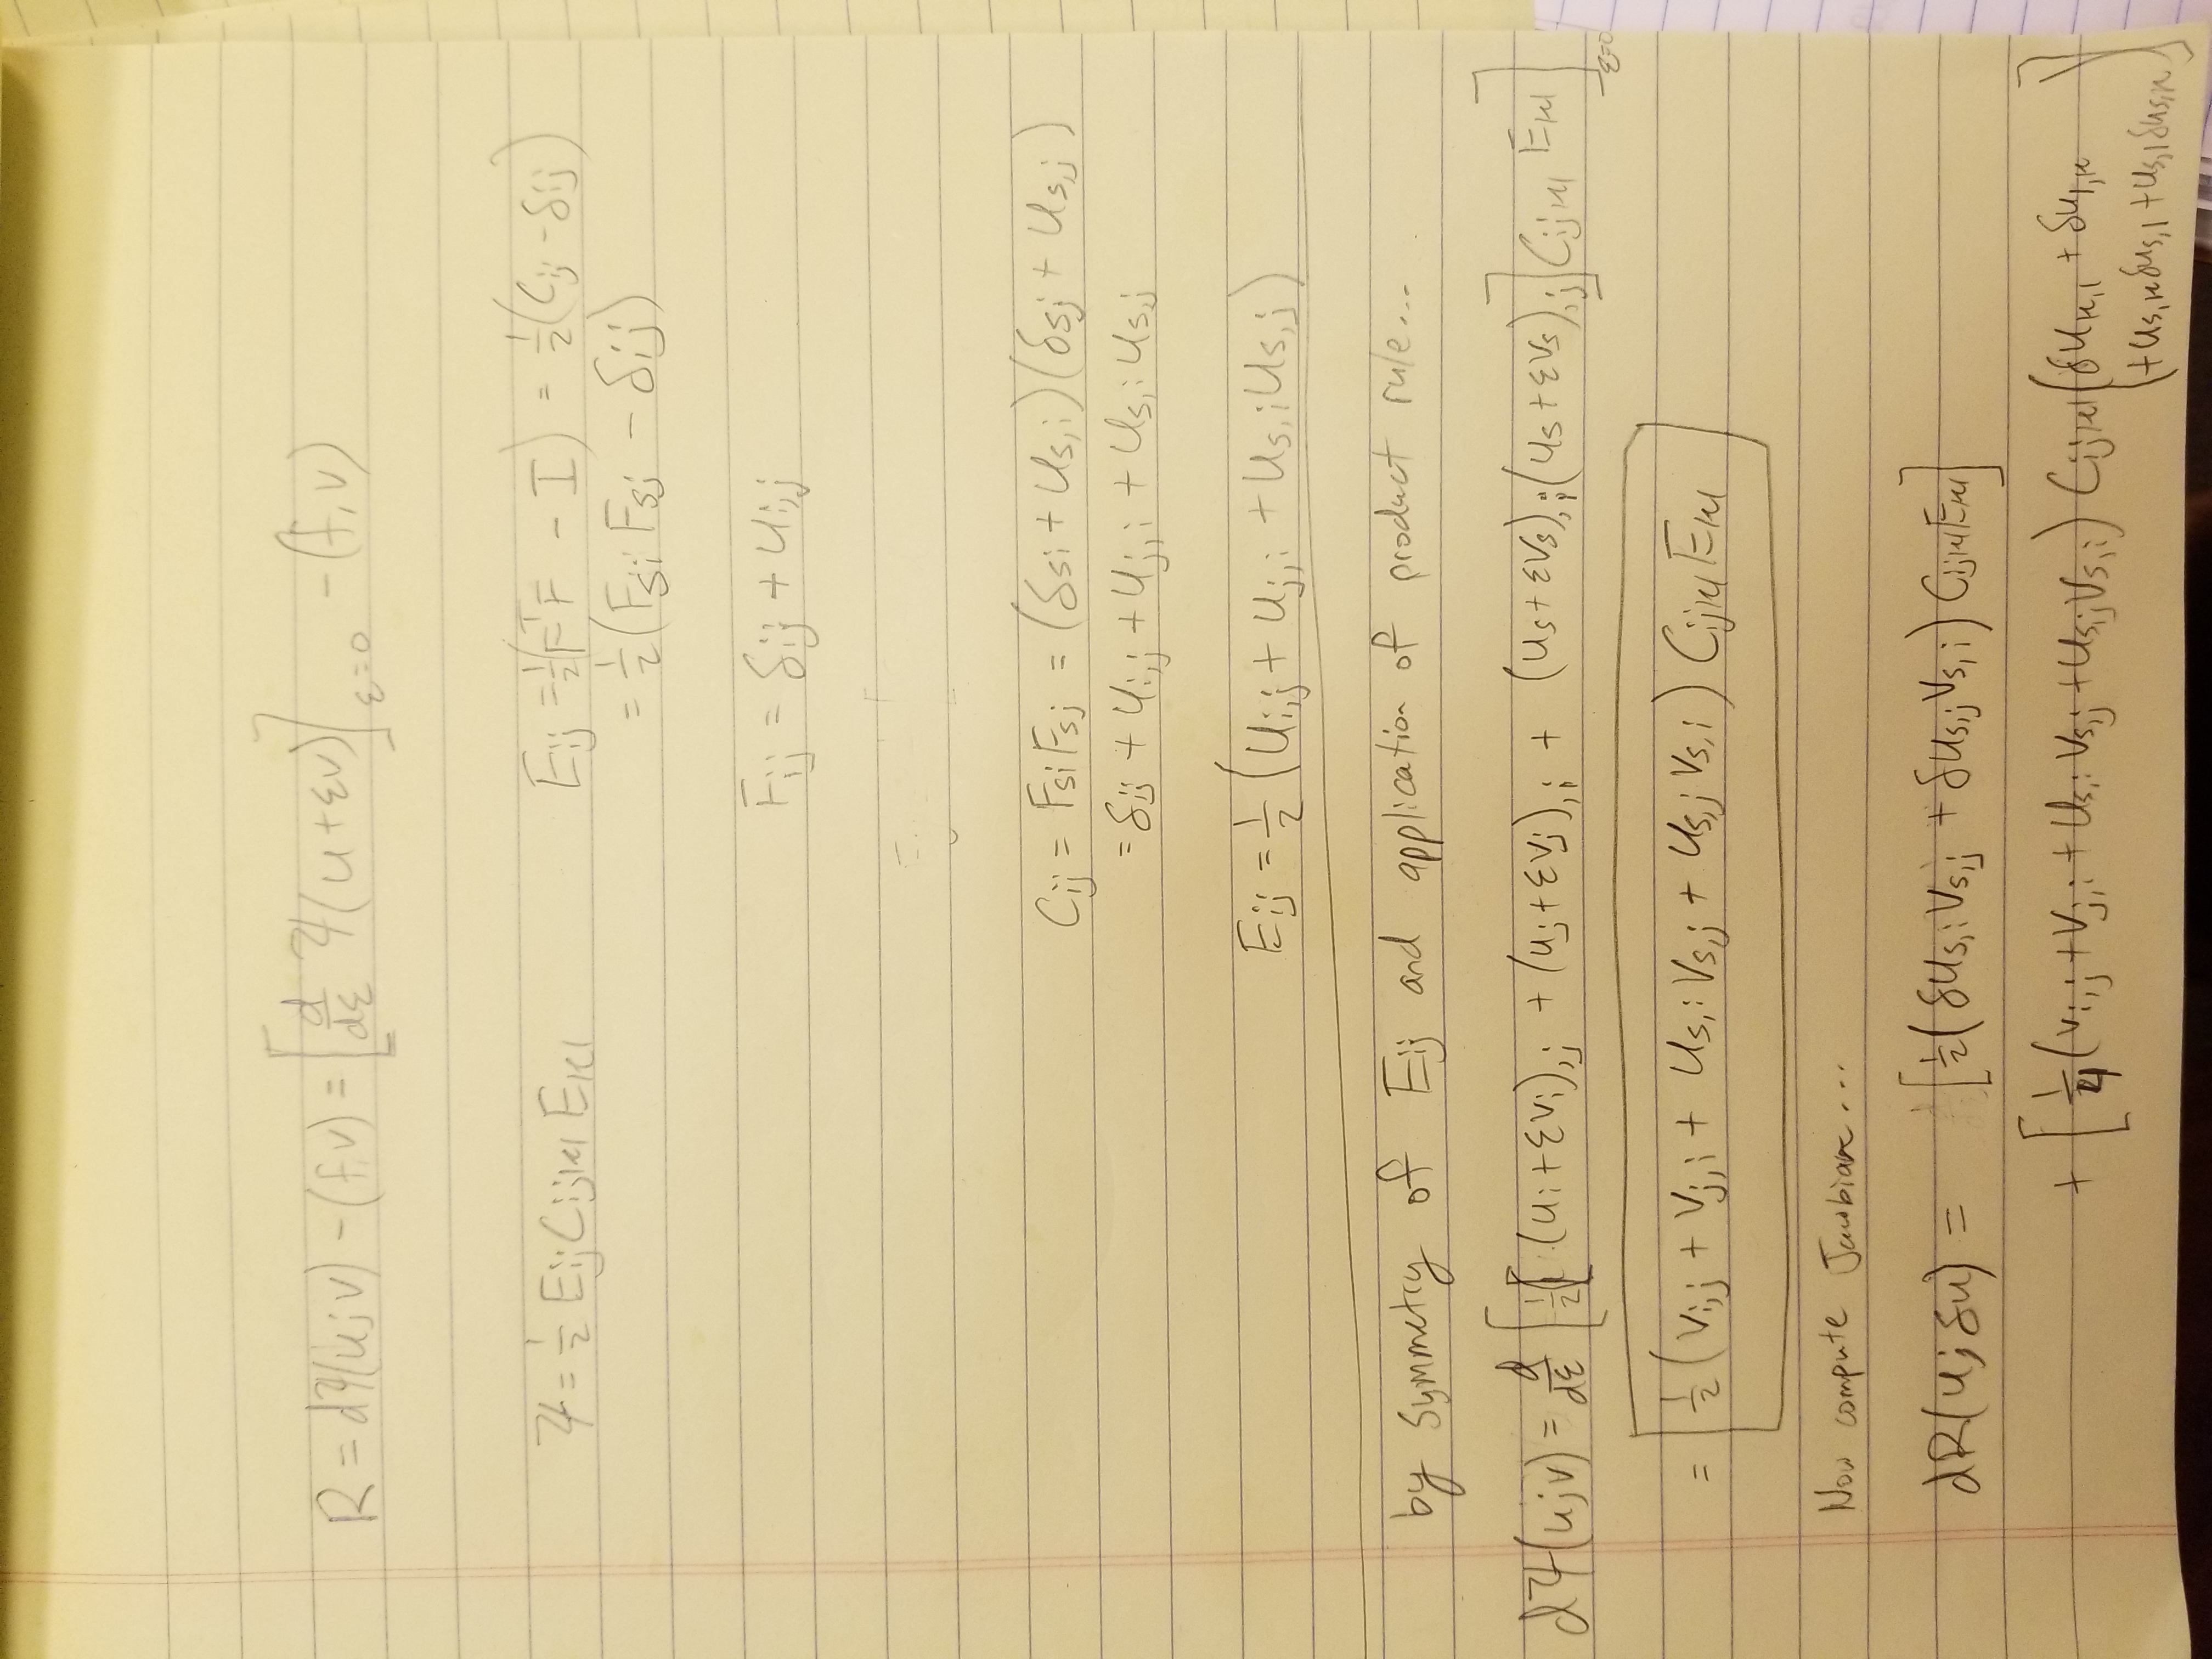 R = dΨ(u;v) - (f,v) = [d/dε Ψ(u+εv)]_{ε=0} - (f,v)
Ψ = 1/2 E_{ij} C_{ijkl} E_{kl}
E_{ij} = 1/2(F^T F - I) = 1/2(C_{ij} - δ_{ij})
= 1/2(F_{si} F_{sj} - δ_{ij})
F_{ij} = δ_{ij} + u_{i,j}
C_{ij} = F_{si} F_{sj} = (δ_{si} + u_{s,i})(δ_{sj} + u_{s,j})
= δ_{ij} + u_{i,j} + u_{j,i} + u_{s,i} u_{s,j}
E_{ij} = 1/2 (u_{i,j} + u_{j,i} + u_{s,i} u_{s,j})
by symmetry of E_{ij} and application of product rule...
dΨ(u;v) = d/dε [1/2[(u_i+εv_i)_{,j} + (u_j+εv_j)_{,i} + (u_s+εv_s)_{,i}(u_s+εv_s)_{,j}] C_{ijkl} E_{kl}]_{ε=0}
= 1/2 (v_{i,j} + v_{j,i} + u_{s,i} v_{s,j} + u_{s,j} v_{s,i}) C_{ijkl} E_{kl}
Now compute Jacobian...
dR(u;δu) = [1/2(δu_{s,i} v_{s,j} + δu_{s,j} v_{s,i}) C_{ijkl} E_{kl}]
+ [1/4(v_{i,j} + v_{j,i} + u_{s,i} v_{s,j} + u_{s,j} v_{s,i}) C_{ijkl}(δu_{k,l} + δu_{l,k}
+ u_{s,k} δu_{s,l} + u_{s,l} δu_{s,k})]